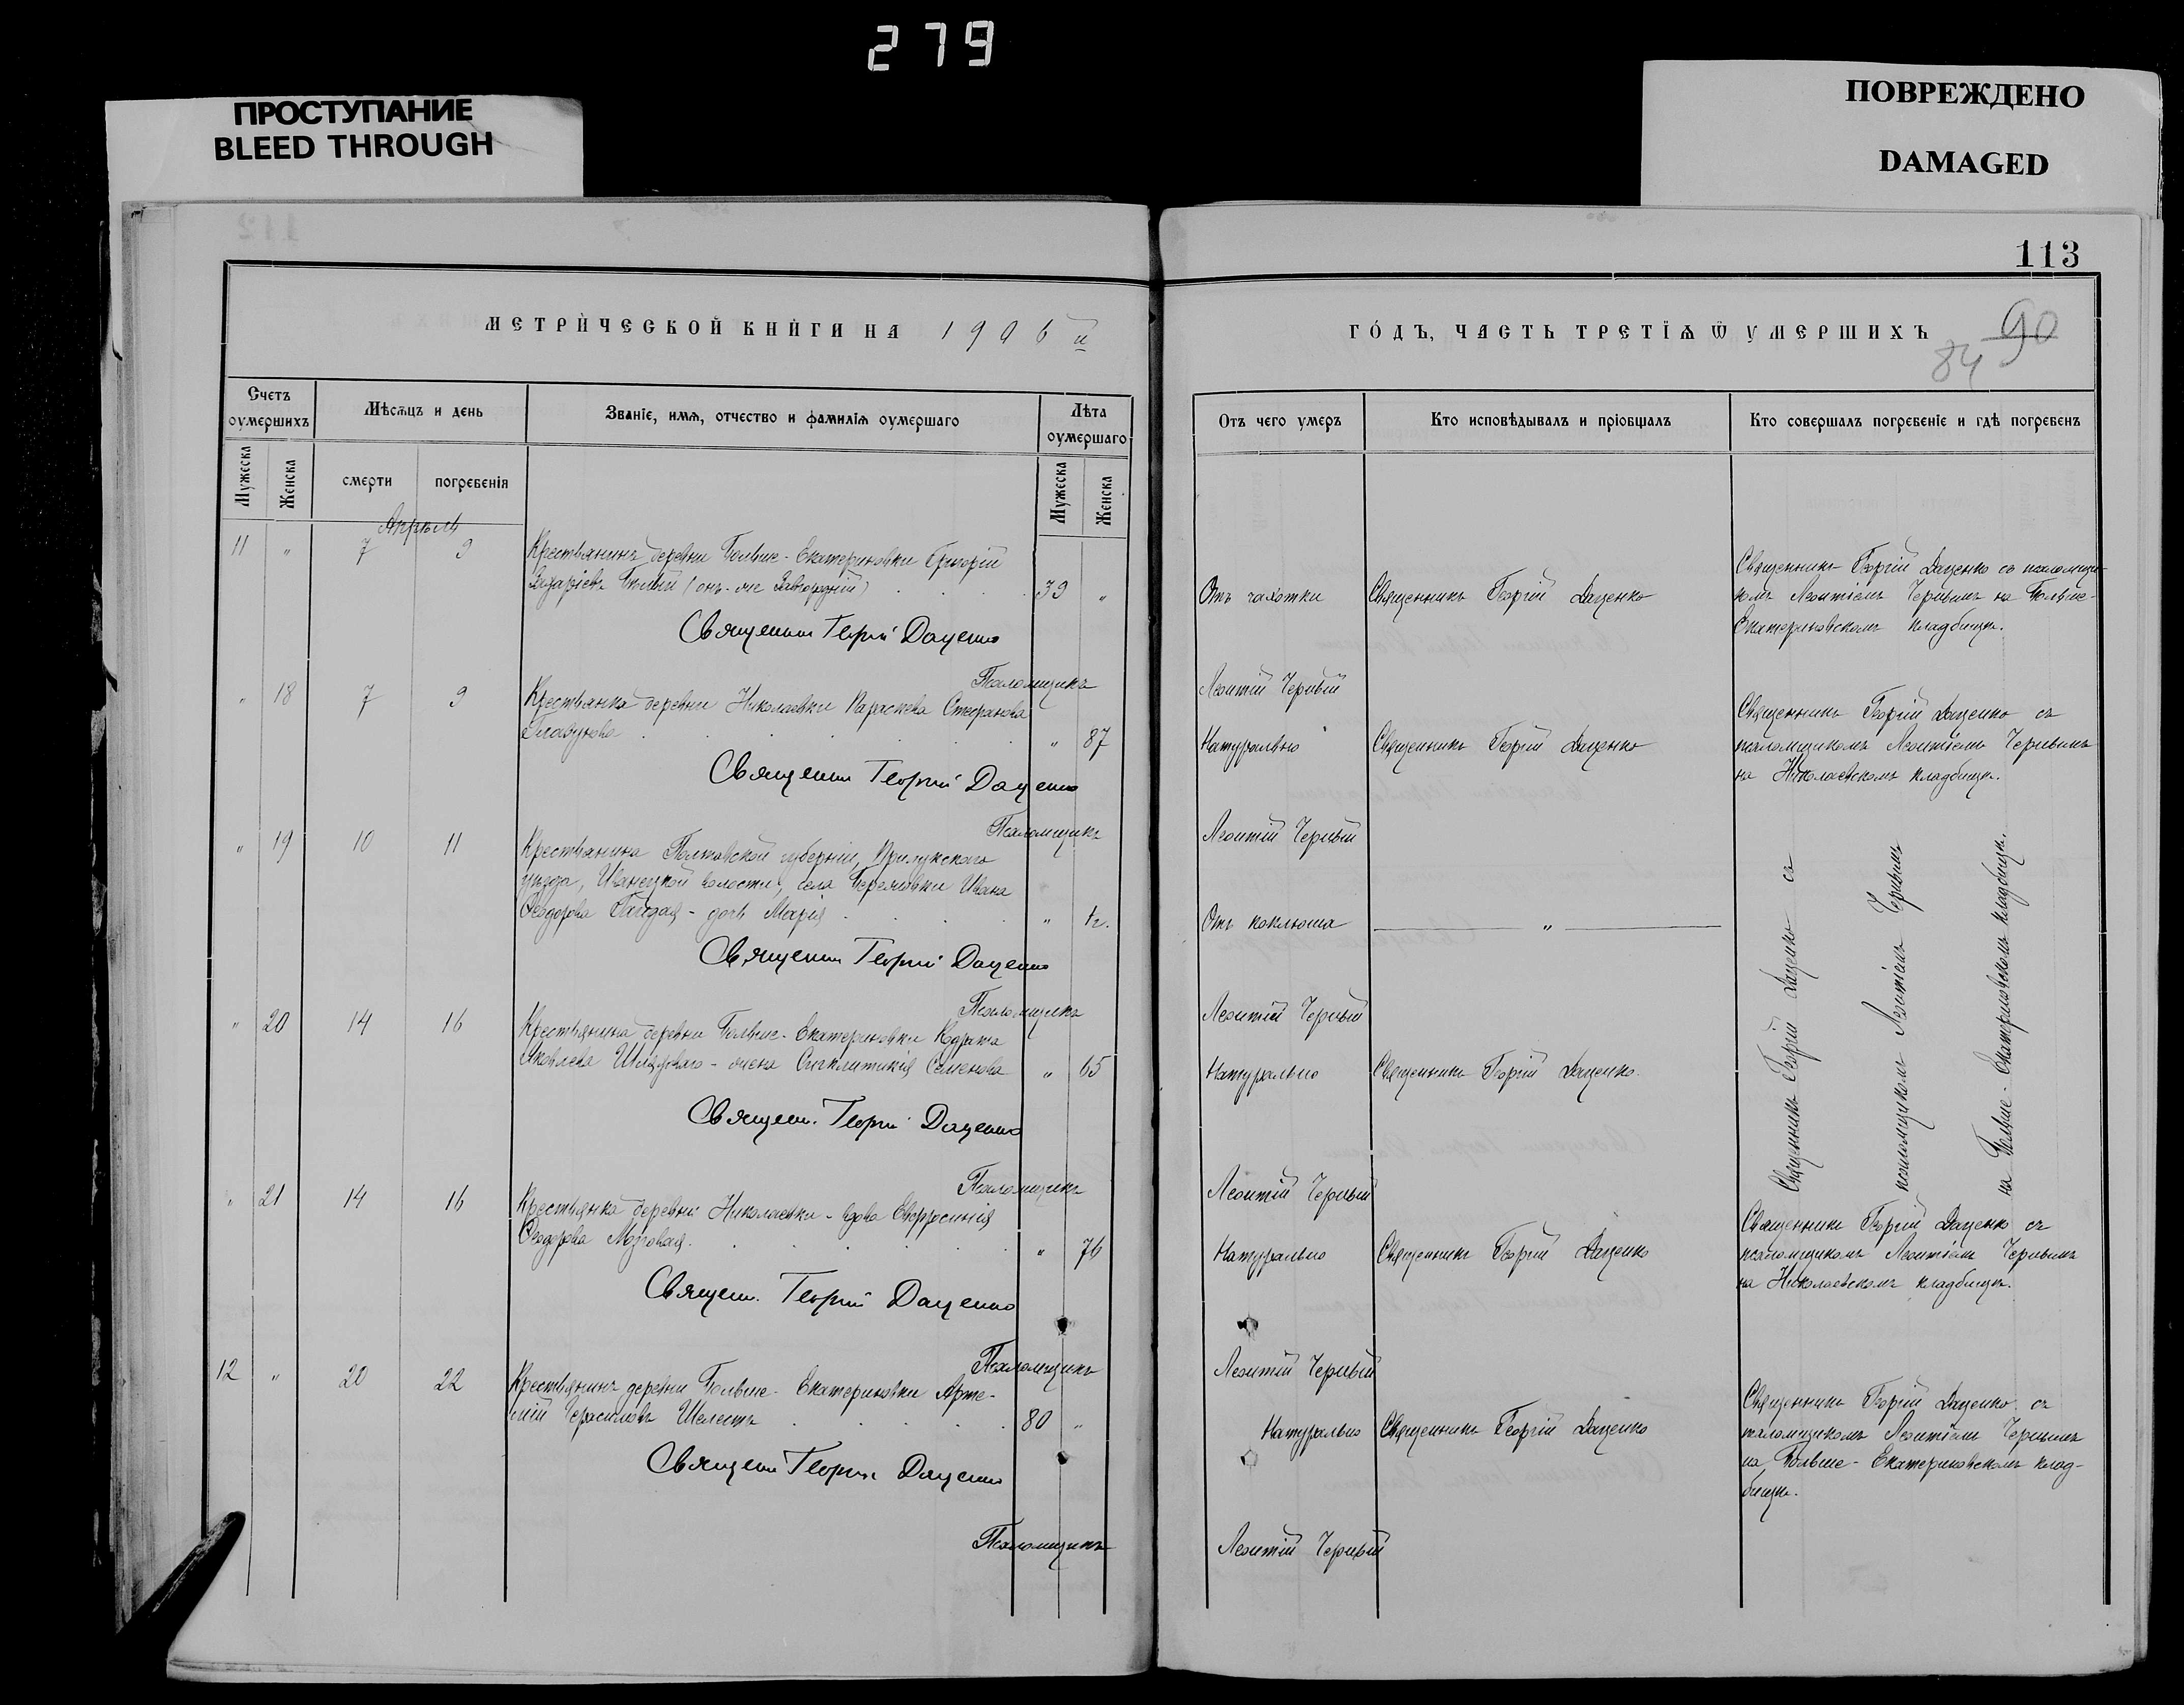 279
ПРОСТУПАНИЕ
BLEED THROUGH
ПОВРЕЖДЕНО
DAMAGED
113
МЕТРИЧЕСКОЙ КНИГИ НА 1906 й
ГОДЪ, ЧАСТЬ ТРЕТІЯ Ѿ УМЕРШИХЪ
90
84
Счетъ оумершихъ
Мѣсяцъ и день
Званіе, имя, отчество и фамилія оумершаго
Лѣта оумершаго
Отъ чего умеръ
Кто исповѣдывалъ и пріобщалъ
Кто совершалъ погребеніе и гдѣ погребенъ
Мужеска
Женска
смерти
погребенія
Мужеска
Женска
Апрѣль
11 " 7 9 Крестьянинъ деревни Больше-Екатериновки Григорій
Захаріевъ Бѣлый (онъ-же Завгородній) 39 "
Отъ чахотки
Священникъ Георгій Даценко
Священникъ Георгій Даценко съ псаломщи-
комъ Леонтіемъ Чернымъ на Больше-
Екатериновскомъ кладбищѣ.
Священникъ Георгій Даценко
Псаломщикъ Леонтій Черный
" 18 7 9 Крестьянка деревни Николаевки Параскева Стефанова
Глазунова " 87
Натурально
Священникъ Георгій Даценко
Священникъ Георгій Даценко съ
псаломщикомъ Леонтіемъ Чернымъ
на Николаевскомъ кладбищѣ.
Священникъ Георгій Даценко
Псаломщикъ Леонтій Черный
" 19 10 11 Крестьянина Полтавской губерніи, Прилукскаго
уѣзда, Иваницкой волости, села
Ивана
Ѳеодорова Гайдая - дочь Марія " 1г.
Отъ коклюша
"
Священникъ Георгій Даценко съ
псаломщикомъ Леонтіемъ Чернымъ
на Больше-Екатериновскомъ кладбищѣ.
Священникъ Георгій Даценко
Псаломщикъ Леонтій Черный
" 20 14 16 Крестьянина деревни Больше-Екатериновки Кодрата
Яковлева - жена Синклитикія Семенова " 65
Натурально
Священникъ Георгій Даценко.
Священ. Георгій Даценко
Псаломщикъ Леонтій Черный
" 21 14 16 Крестьянка деревни Николаевки - вдова Евфросинія
Ѳеодорова Мозговая. " 76
Натурально
Священникъ Георгій Даценко
Священникъ Георгій Даценко съ
псаломщикомъ Леонтіемъ Чернымъ
на Николаевскомъ кладбищѣ.
Священ. Георгій Даценко
Псаломщикъ Леонтій Черный
12 " 20 22 Крестьянинъ деревни Больше-Екатериновки Арте-
мій Герасимовъ Шелестъ 80 "
Натурально
Священникъ Георгій Даценко
Священникъ Георгій Даценко съ
псаломщикомъ Леонтіемъ Чернымъ
на Больше-Екатериновскомъ клад-
бищѣ.
Священн Георгій Даценко
Псаломщикъ Леонтій Черный